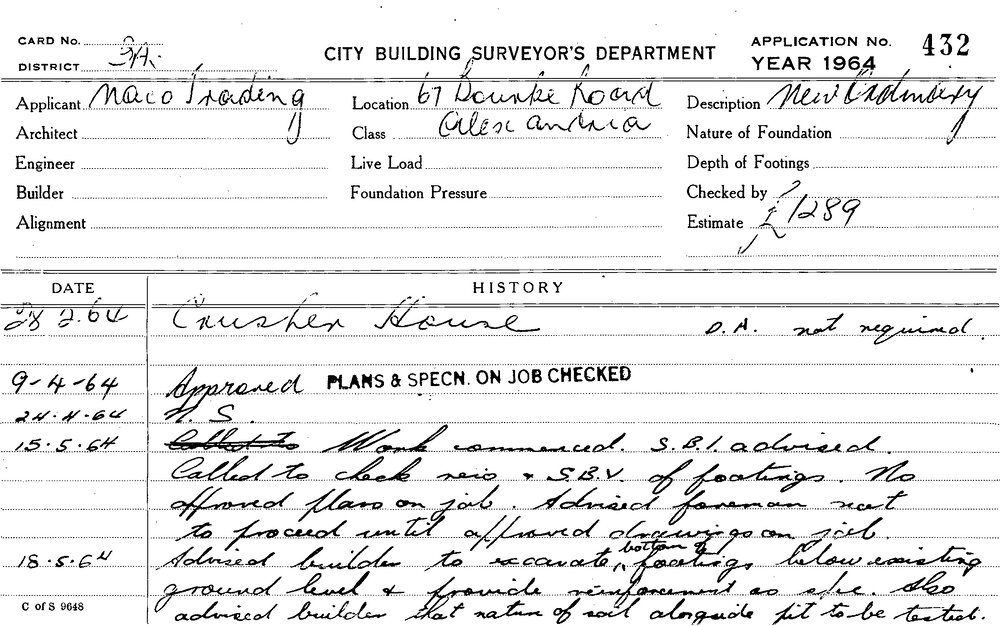 CARD No.
DISTRICT 2A.
CITY BUILDING SURVEYOR'S DEPARTMENT
APPLICATION No. 432
YEAR 1964
Applicant Naco Trading
Location 67 Bourke Road
Description New Ordinary
Architect
Class Alexandria
Nature of Foundation
Engineer
Live Load
Depth of Footings
Builder
Foundation Pressure
Checked by
Alignment
Estimate £1289
DATE HISTORY
28 2.64 Crusher House D.A. not required
9-4-64 Approved PLANS & SPECN. ON JOB CHECKED
24.4.64 N.S.
15.5.64 Called to Work commenced. S.B.I. advised.
Called to check reio & S.B.V. of footings. No
approved plans on job. Advised foreman not
to proceed until approved drawings on job.
18.5.64 Advised builder to excavate bottom of footings below existing
ground level & provide reinforcement as spec. Also
advised builder that nature of soil alongside pit to be tested.
C of S 9648